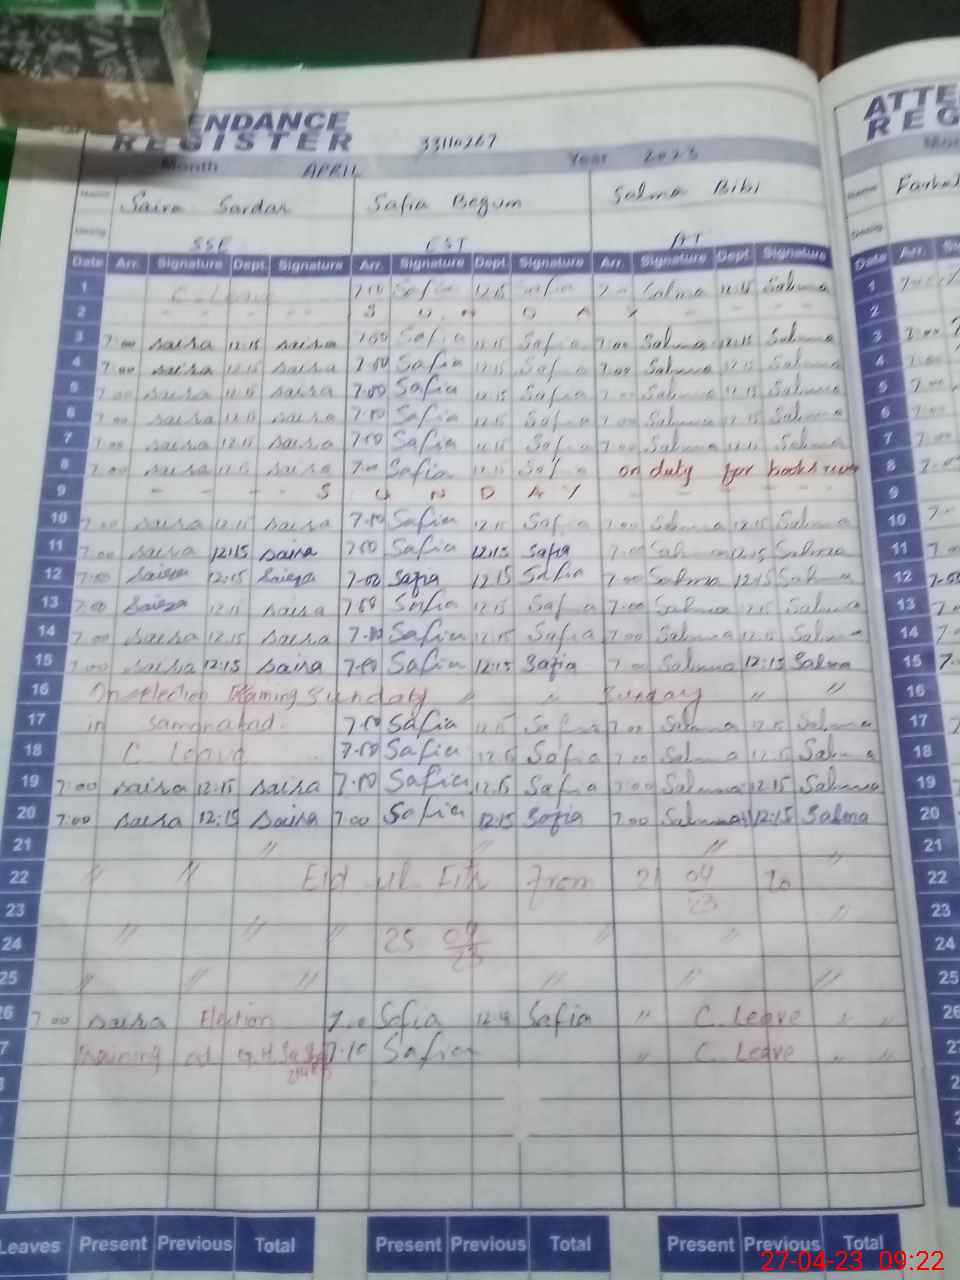 ENDANCE ATTE
REGISTER 33110267 REG
Month APRIL Year 2023
Name Saira Sardar Safia Begum Salma Bibi Name
SSE EST AT
Date Arr. Signature Dept. Signature Arr. Signature Dept. Signature Arr. Signature Dept. Signature Date Arr.
1 C. Leave 7:00 Safia 12:15 Safia 7:00 Salma 12:15 Salma 1
2 S U N D A Y 2
3 7:00 saira 12:15 saira 7:00 Safia 12:15 Safia 7:00 Salma 12:15 Salma 3 7:00
4 7:00 saira 12:15 saira 7:00 Safia 12:15 Safia 7:00 Salma 12:15 Salma 4 7:00
5 7:00 saira 12:15 saira 7:00 Safia 12:15 Safia 7:00 Salma 12:15 Salma 5 7:00
6 7:00 saira 12:15 saira 7:00 Safia 12:15 Safia 7:00 Salma 12:15 Salma 6
7 7:00 saira 12:15 saira 7:00 Safia 12:15 Safia 7:00 Salma 12:15 Salma 7
8 7:00 saira 12:15 saira 7:00 Safia 12:15 Safia on duty for books 8
9 S U N D A Y 9
10 7:00 saira 12:15 saira 7:00 Safia 12:15 Safia 7:00 Salma 12:15 Salma 10
11 7:00 saira 12:15 saira 7:00 Safia 12:15 Safia 7:00 Salma 12:15 Salma 11
12 7:00 Saira 12:15 Saira 7:00 Safia 12:15 Safia 7:00 Salma 12:15 Salma 12 7:00
13 7:00 Saira 12:15 saira 7:00 Safia 12:15 Safia 7:00 Salma 12:15 Salma 13
14 7:00 saira 12:15 saira 7:00 Safia 12:15 Safia 7:00 Salma 12:15 Salma 14
15 7:00 saira 12:15 saira 7:00 Safia 12:15 Safia 7:00 Salma 12:15 Salma 15
16 On election Sunday " " Sunday " " 16
17 in 7:00 Safia 12:15 Safia 7:00 Salma 12:15 Salma 17
18 C Leave 7:00 Safia 12:15 Safia 7:00 Salma 12:15 Salma 18
19 7:00 saira 12:15 saira 7:00 Safia 12:15 Safia 7:00 Salma 12:15 Salma 19
20 7:00 saira 12:15 Saira 7:00 Safia 12:15 Safia 7:00 Salma 12:15 Salma 20
21 " " " " 21
22 " " Eid ul Fitr From 21 04/23 To 22
23 " 23
24 " " " 25 04/23 " " 24
25 " " " " " " 25
26 7:00 saira Election 7:00 Safia Safia " C. Leave " " 26
7 Training at G.H.S 7:10 Safia " C. Leave " "
Leaves Present Previous Total Present Previous Total Present Previous Total
27-04-23 09:22